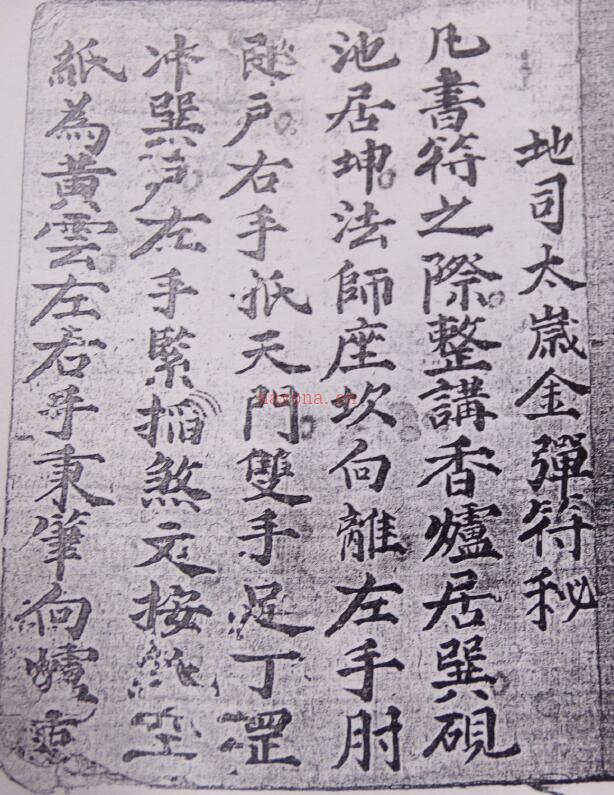 地司太歲金彈符秘
凡書符之際整講香爐居巽硯
池居坤法師座坎向離左手肘
戶右手抵天門雙手足丁罡
冲巽戶左手緊掐煞文按
紙為黃雲左右手秉筆向